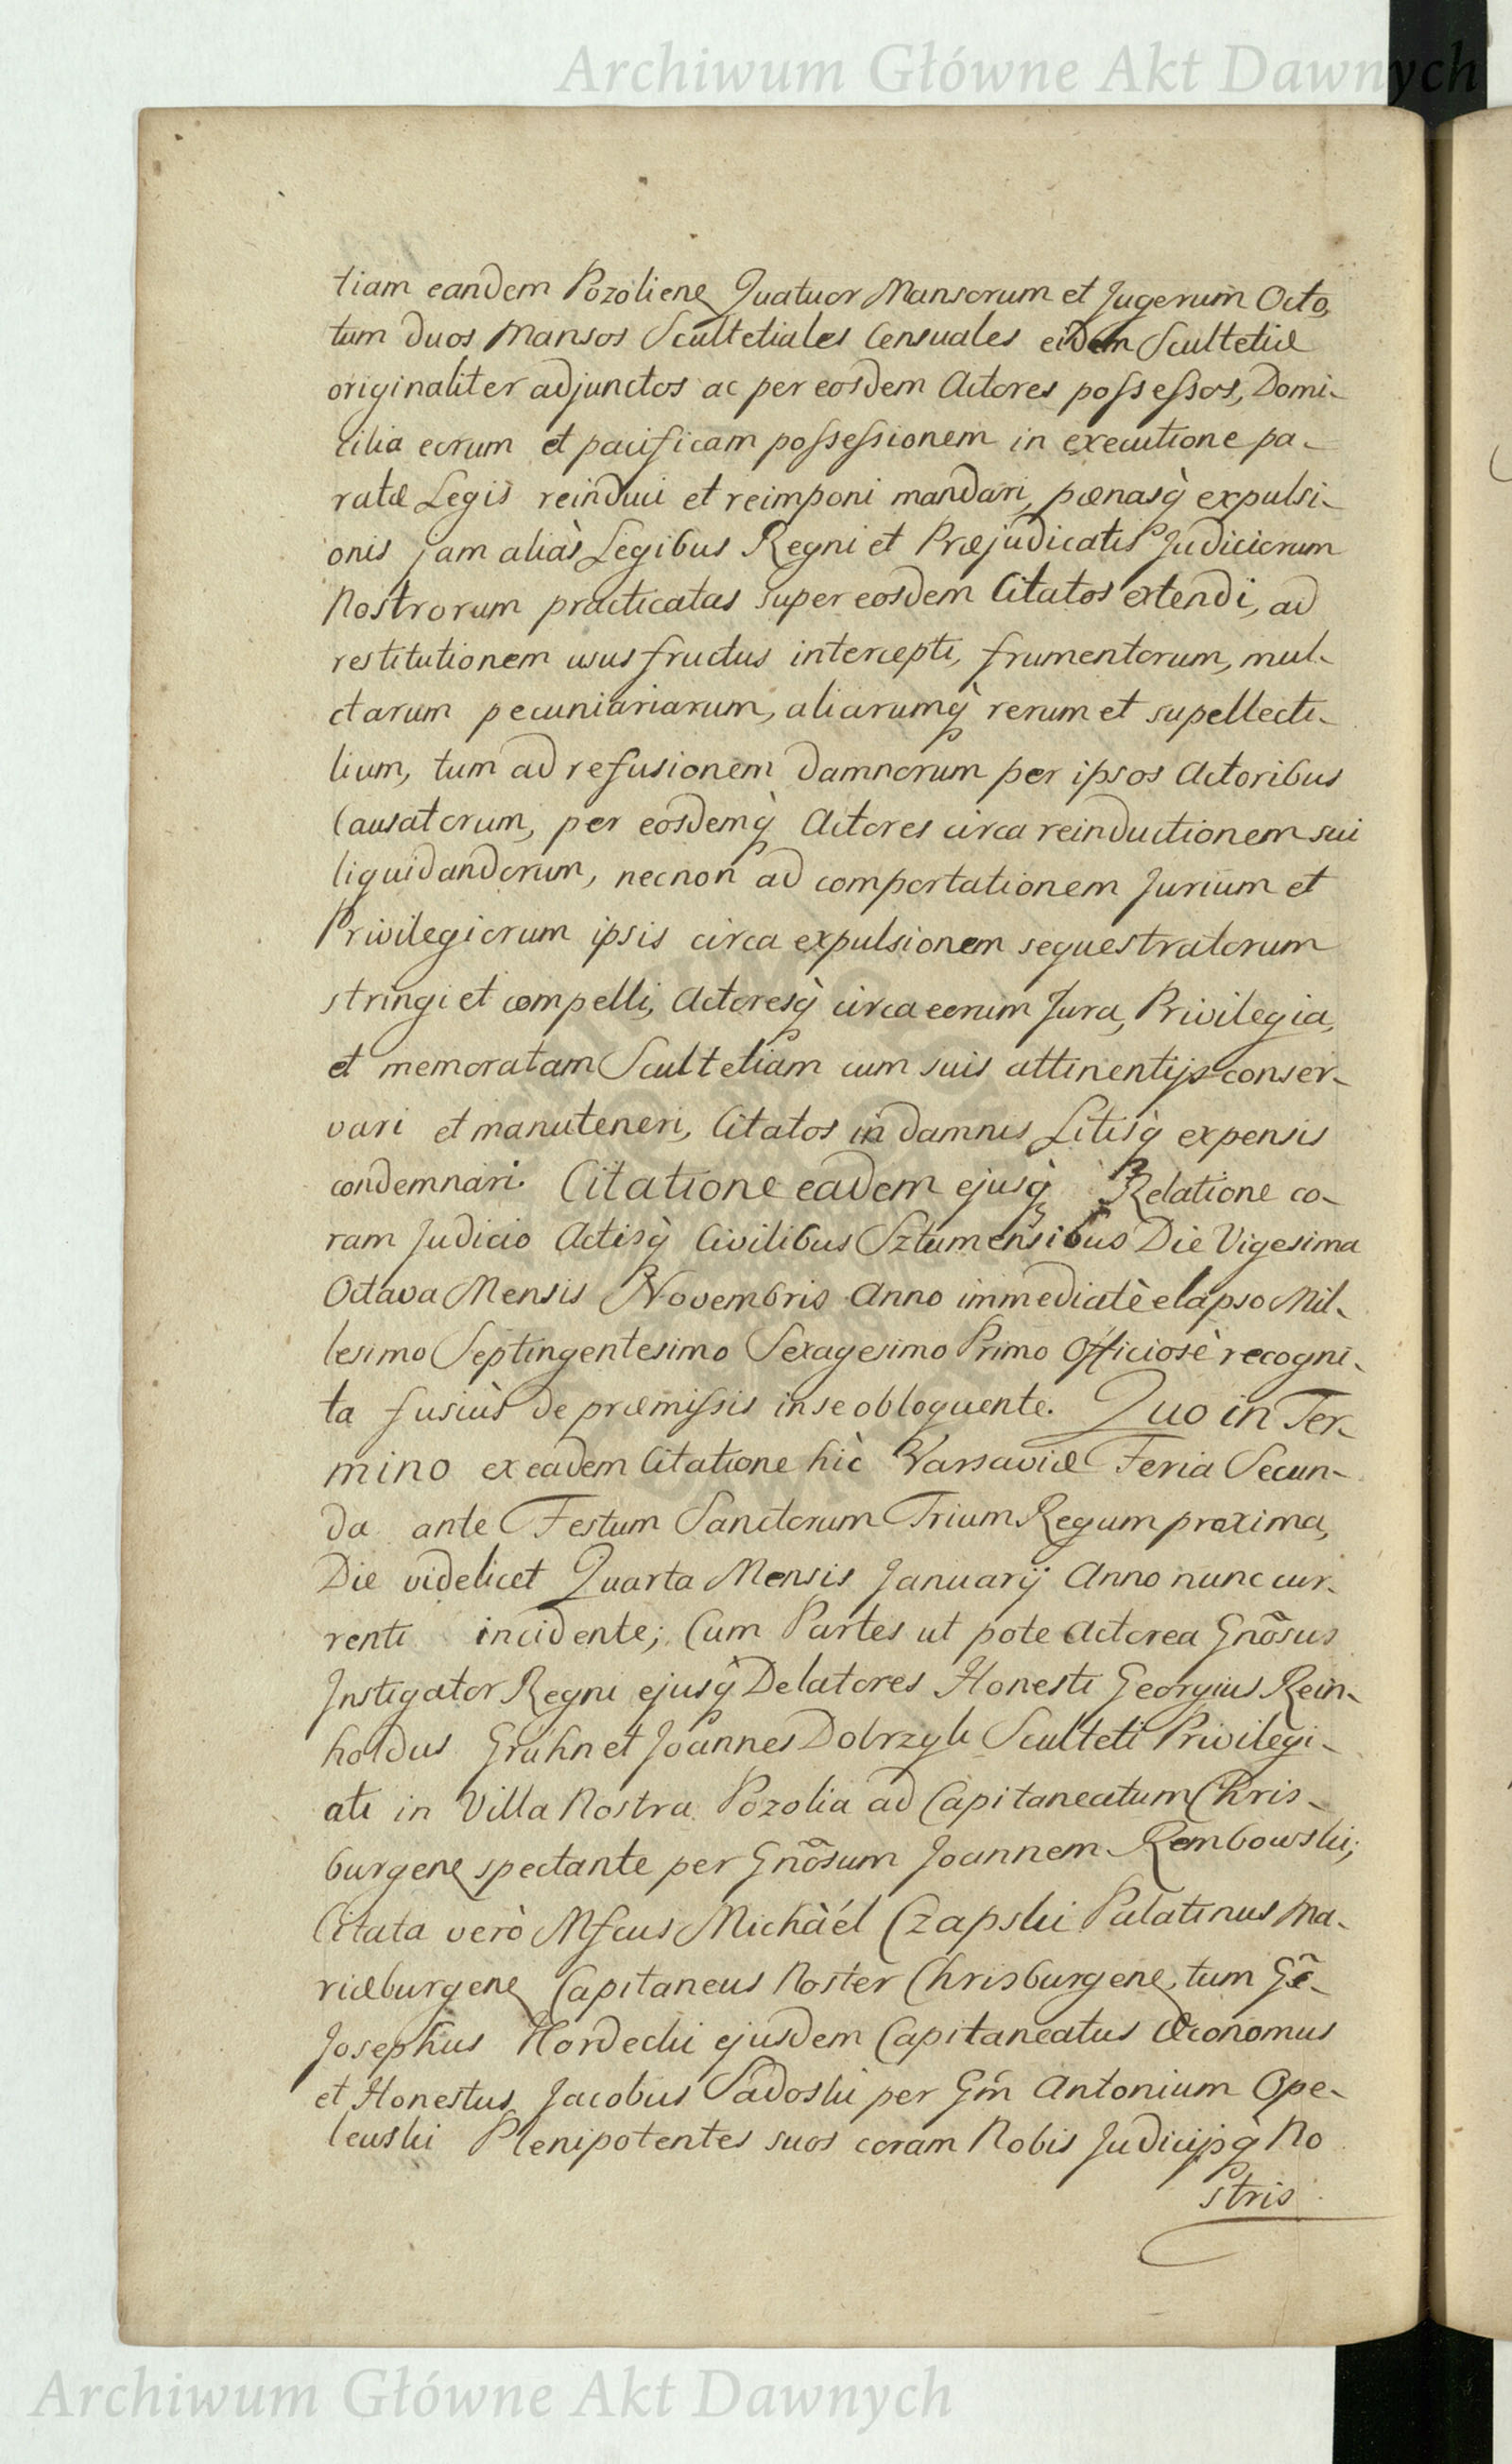 Archiwum Główne Akt Dawnych
tiam eandem Pozoliene Quatuor Mansorum et Jugerum Octo,
tum duos Mansos Scultetiales Censuales eidem Scultetiæ
originaliter adjunctos ac per eosdem Actores possessos, Domi-
cilia eorum et pacificam possessionem in executione pa-
ratæ Legis reinduci et reimponi mandari, pœnasq̀ expulsi-
onis jam aliàs Legibus Regni et Præjudicatis Judiciorum
Nostrorum practicatas super eosdem Citatos extendi, ad
restitutionem ususfructus intercepti, frumentorum, mul-
ctarum pecuniariarum, aliarumq̀ rerum et supellecti-
lium, tum ad refusionem damnorum per ipsos Actoribus
Causatorum, per eosdemq̀ Actores circa reinductionem sui
liquidandorum, necnon ad comportationem Jurium et
Privilegiorum ipsis circa expulsionem sequestratorum
stringi et compelli, Actoresq̀ circa eorum Jura, Privilegia,
et memoratam Scultetiam cum suis attinentijs conser-
vari et manuteneri, Citatos in damnis Litisq̀ expensis
condemnari. Citatione eadem ejusq̀ Relatione co-
ram Judicio Actisq̀ Civilibus Sztumensibus Die Vigesima
Octava Mensis Novembris Anno immediatè elapso Mil-
lesimo Septingentesimo Sexagesimo Primo Officiosè recogni-
ta fusiùs de præmissis in se obloquente. Quo in Ter-
mino ex eadem Citatione hìc Varsaviæ Feria Secun-
da ante Festum Sanctorum Trium Regum proxima,
Die videlicet Quarta Mensis Januarij Anno nunc cur-
renti incidente; Cum Partes ut pote Actorea Gnõsus
Instigator Regni ejusq̀ Delatores Honesti Georgius Rein-
holdus Gruhn et Joannes Dobrzyk Sculteti Privilegi-
ati in Villa Nostra Pozolia ad Capitaneatum Chris-
burgene spectante per Gnõsum Joannem Rembowski;
Citata verò Mfcus Michàél Czapski Palatinus Ma-
riæburgene Capitaneus Noster Chrisburgene, tum
Josephus Hordecki ejusdem Capitaneatus Œconomus
et Honestus Jacobus Sadoski per Gm̃ Antonium Ope-
lewski Plenipotentes suos coram Nobis Judicijsq̀ No
stris
Archiwum Główne Akt Dawnych